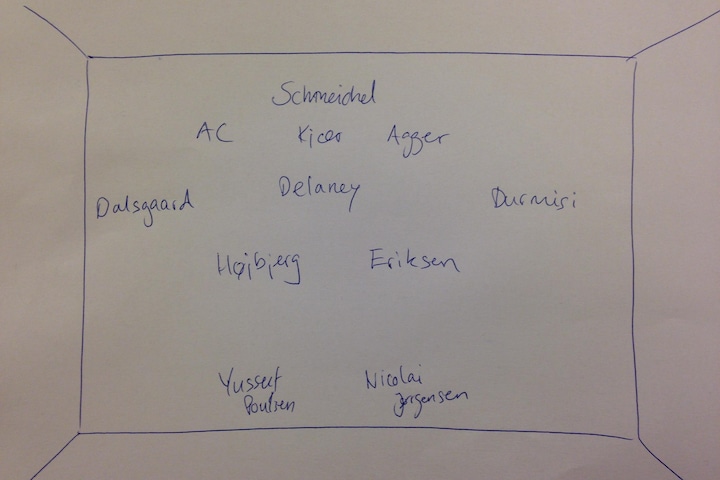 Schmeichel
AC Kjær Agger
Delaney
Dalsgaard Durmisi
Højbjerg Eriksen
Yussuf Nicolai
Poulsen Jørgensen